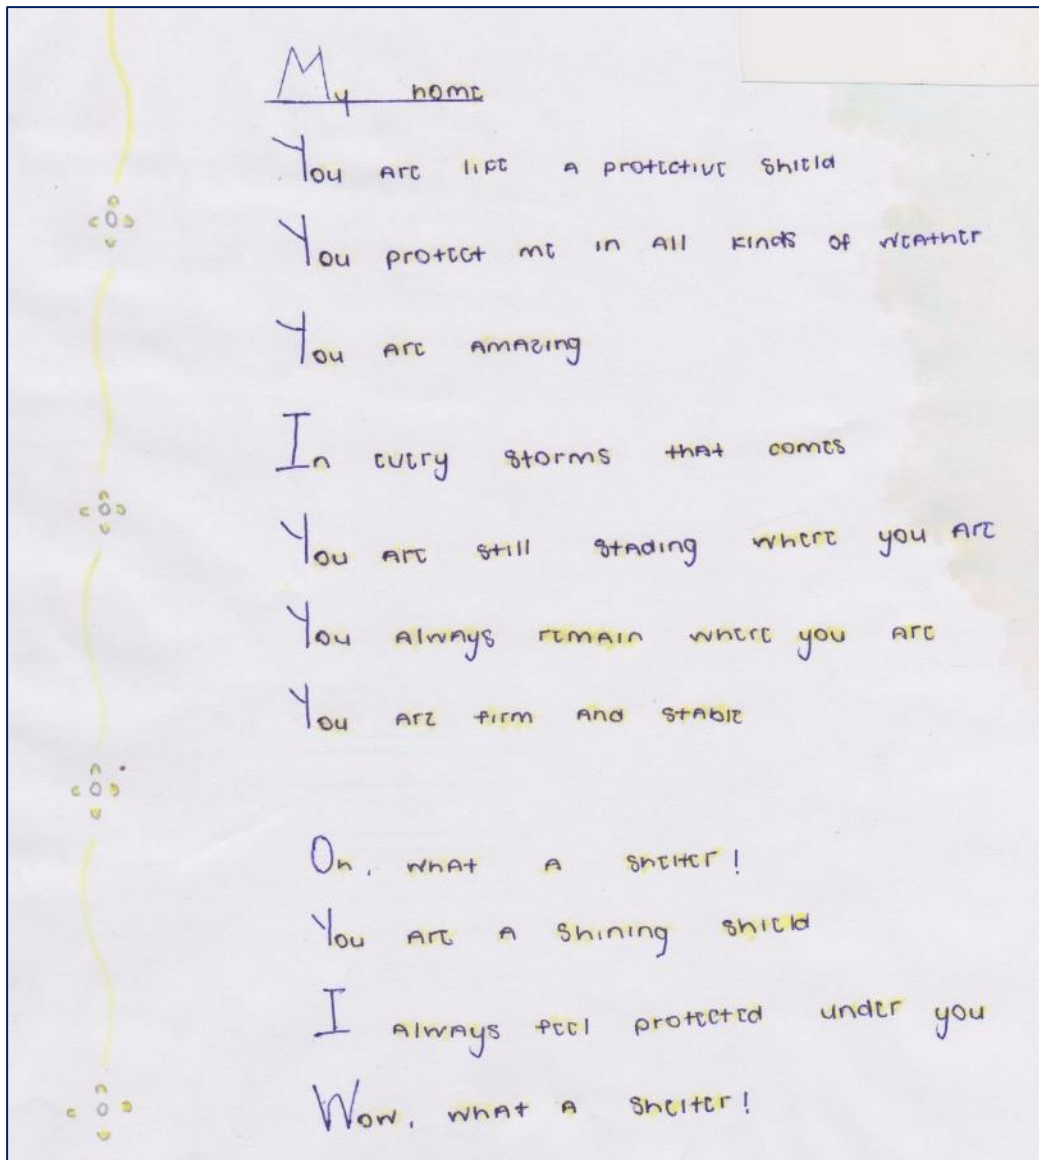 My home
You are like a protective shield
You protect me in all kinds of weather
You are amazing
In every storms that comes
You are still stading where you are
You always remain where you are
You are firm and stable
Oh, what a shelter!
You are a shining shield
I always feel protected under you
Wow, what a shelter!